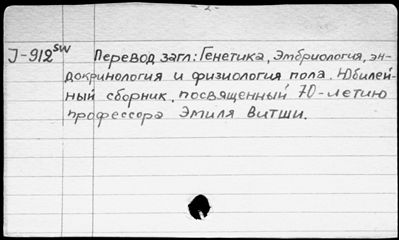 - 2 -
J-912 SW Перевод загл: Генетика, Эмбриология, эн-
докринология и физиология пола. Юбилей-
ный сборник, посвященный 70-летию
профессора Эмиля Витши.